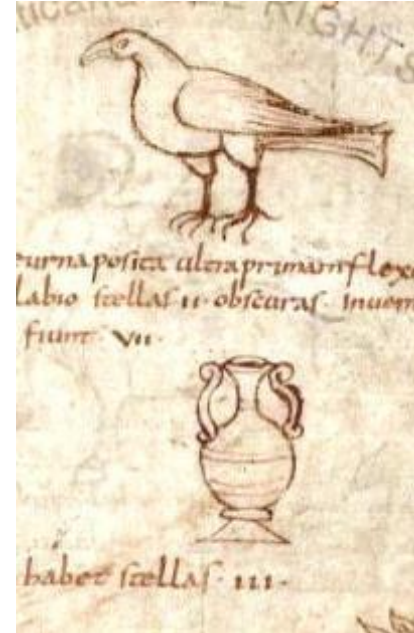 ALL RIGHTS
urna posita ultra primam flex
labio stellas ii· obscuras· inuen
fiunt· vii·
habet stellas· iii·